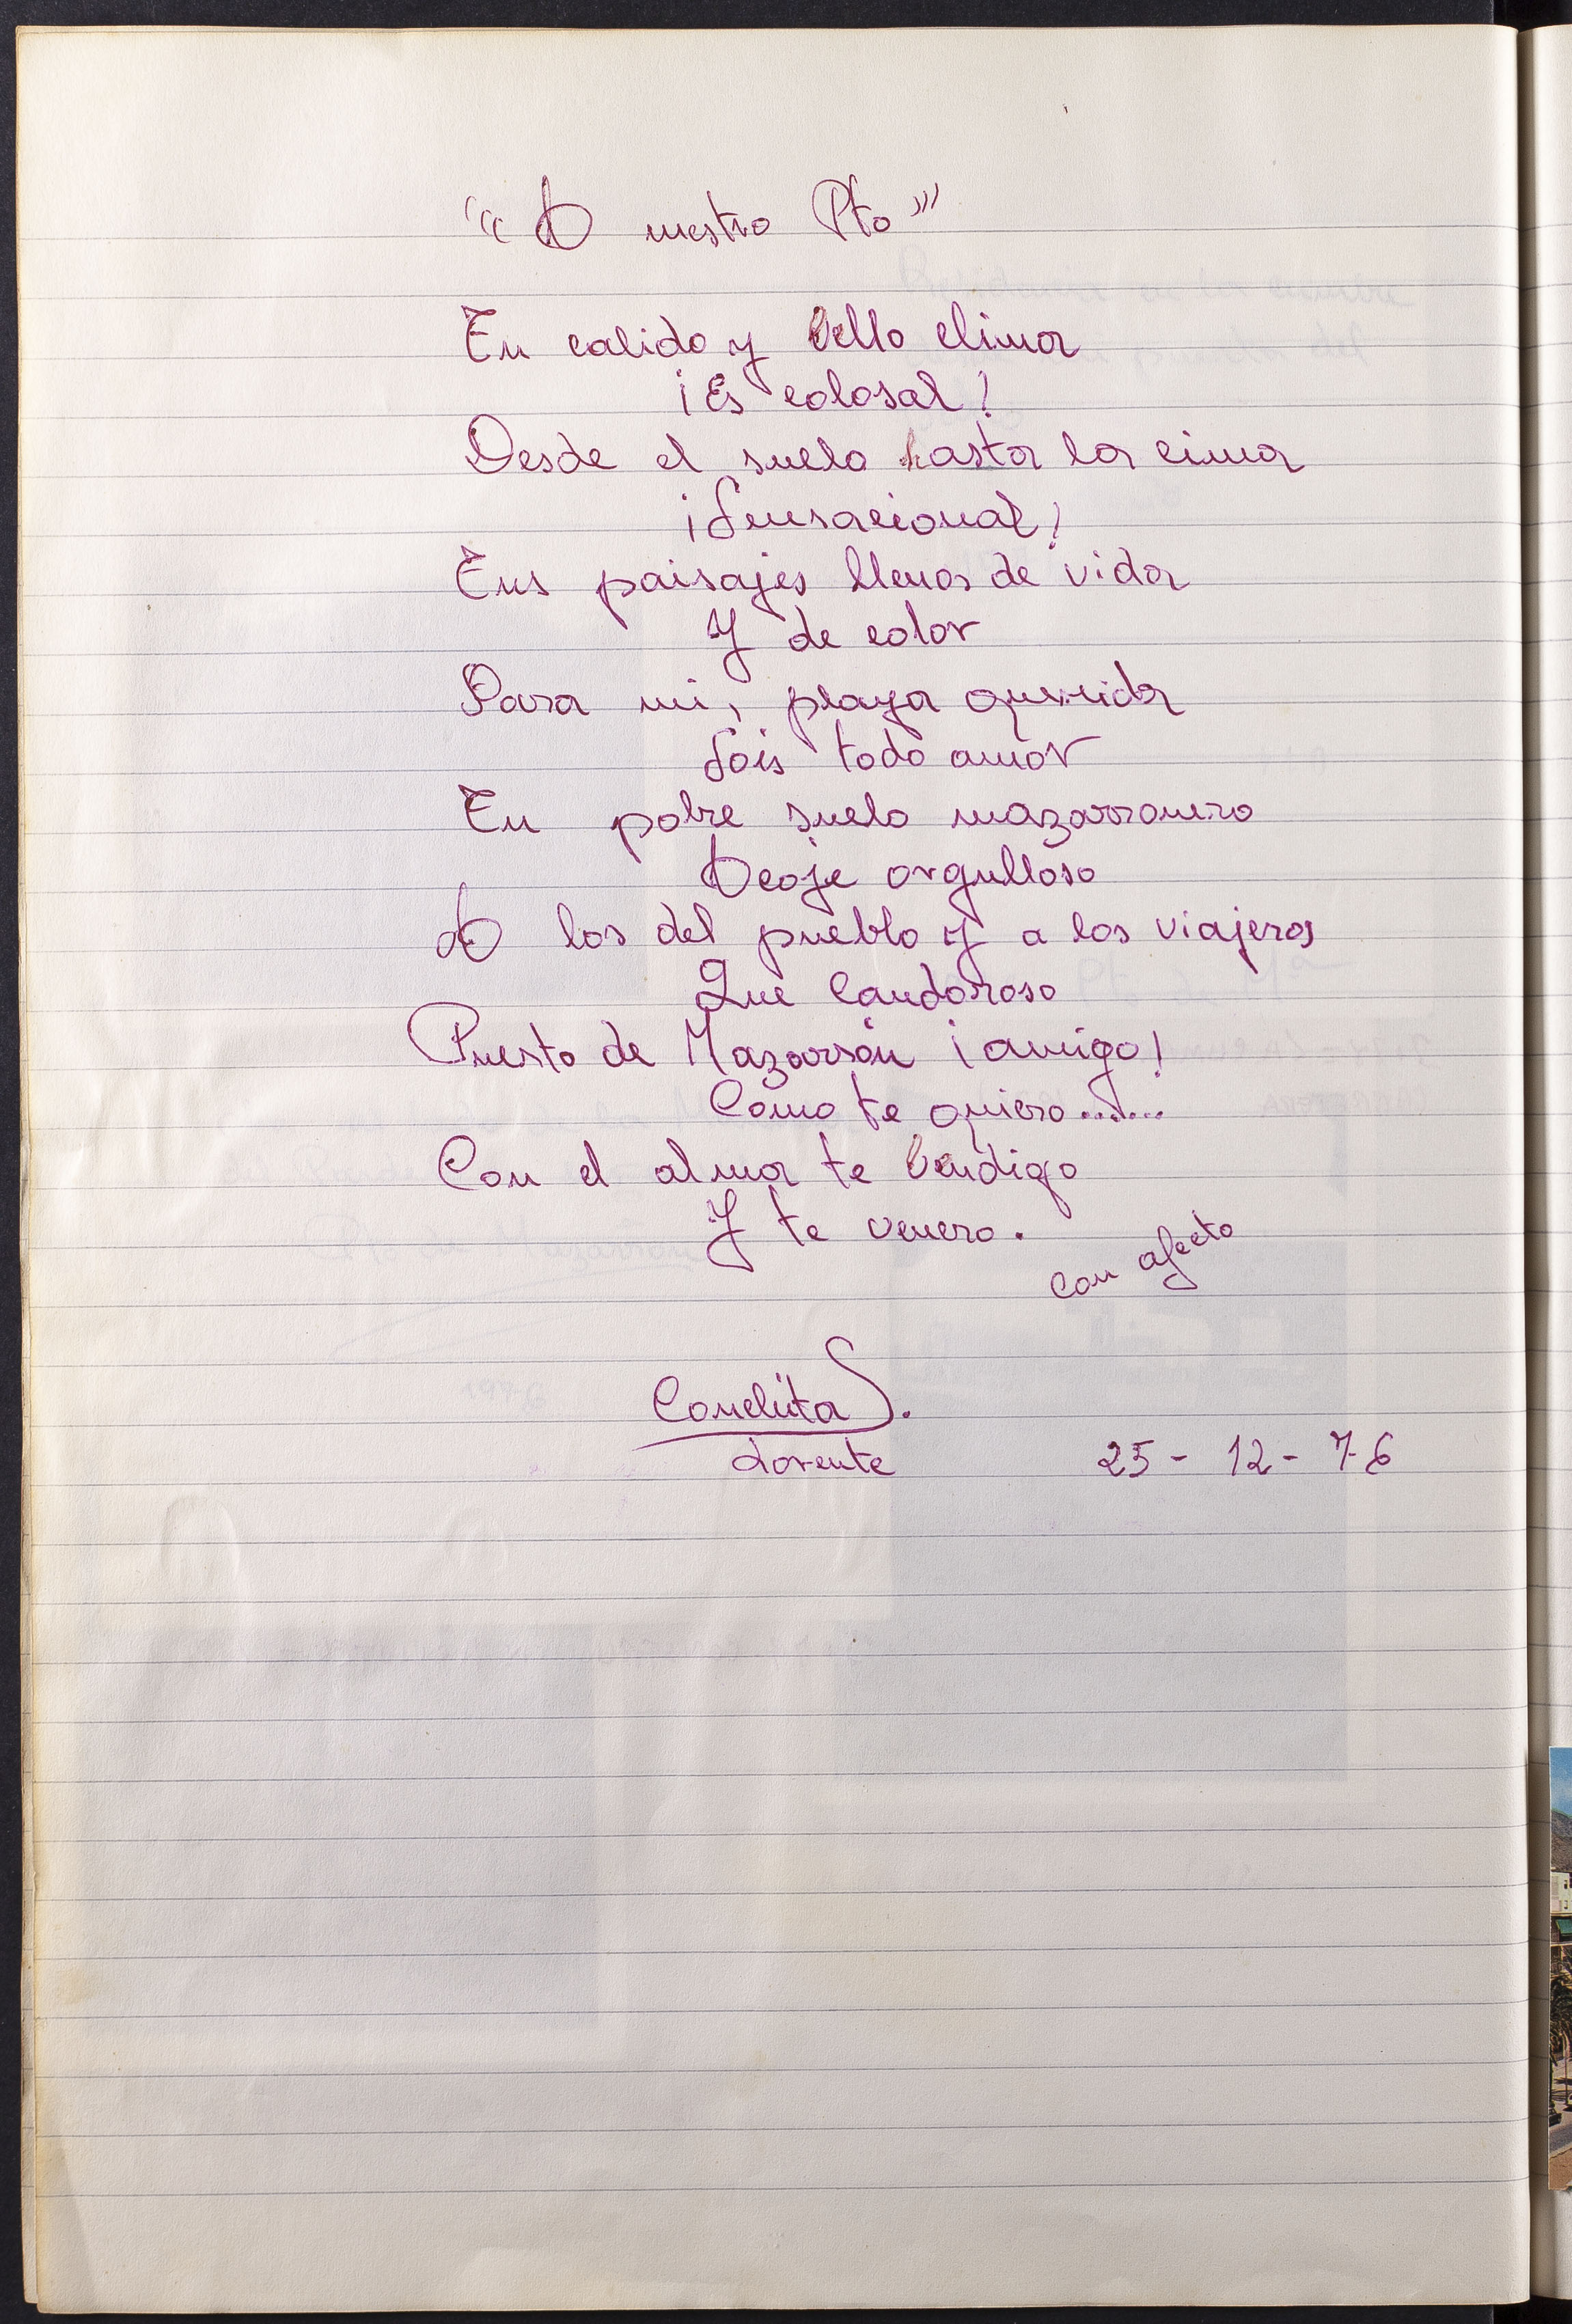 "A nuestro Pto"
Tu calido y bello clima
¡Es colosal!
Desde el suelo hasta la cima
¡Sensacional!
Tus paisajes llenos de vida
Y de color
Para mi, playa querida
Sois todo amor
Tu pobre suelo mazarronero
Acoje orgulloso
A los del pueblo y a los viajeros
Que candoroso
Puerto de Mazarrón ¡amigo!
Como te quiero......
Con el alma te bendigo
Y te venero.
con afecto
Conchita S.
Lorente
25 - 12 - 76